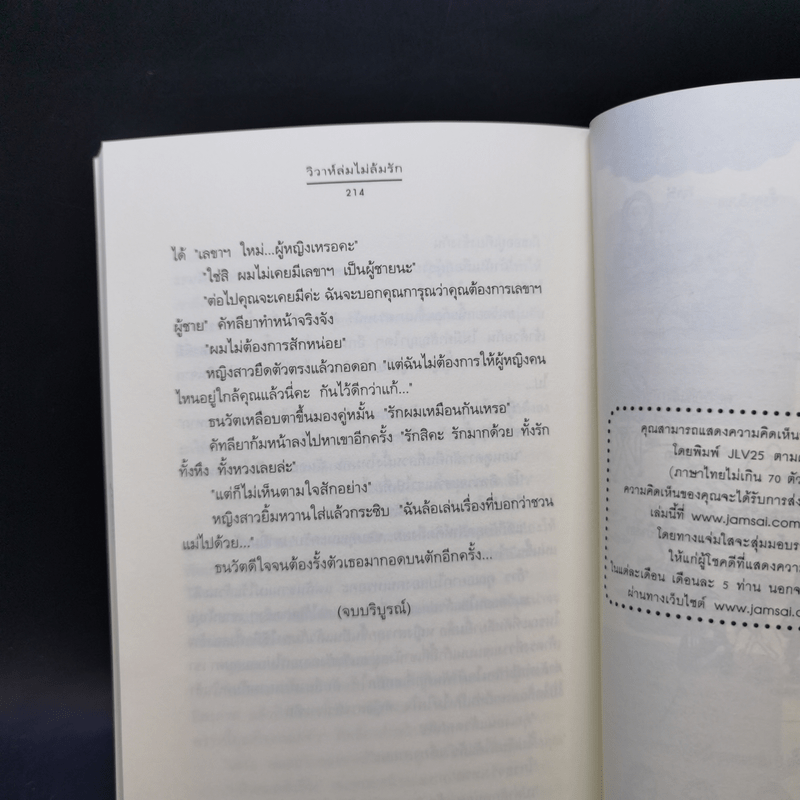 วิวาห์ล่มไม่ล้มรัก
214
ได้ "เลขาฯ ใหม่...ผู้หญิงเหรอคะ"
"ใช่สิ ผมไม่เคยมีเลขาฯ เป็นผู้ชายนะ"
"ต่อไปคุณจะเคยมีค่ะ ฉันจะบอกคุณการุณว่าคุณต้องการเลขาฯ
ผู้ชาย" คัทลียาทำหน้าจริงจัง
"ผมไม่ต้องการสักหน่อย"
หญิงสาวยืดตัวตรงแล้วกอดอก "แต่ฉันไม่ต้องการให้ผู้หญิงคน
ไหนอยู่ใกล้คุณแล้วนี่คะ กันไว้ดีกว่าแก้..."
ธนวัตเหลือบตาขึ้นมองคู่หมั้น "รักผมเหมือนกันเหรอ"
คัทลียาก้มหน้าลงไปหาเขาอีกครั้ง "รักสิคะ รักมากด้วย ทั้งรัก
ทั้งหึง ทั้งหวงเลยล่ะ"
"แต่ก็ไม่เห็นตามใจสักอย่าง"
หญิงสาวยิ้มหวานใส่แล้วกระซิบ "ฉันล้อเล่นเรื่องที่บอกว่าชวน
แม่ไปด้วย..."
ธนวัตดีใจจนต้องรั้งตัวเธอมากอดบนตักอีกครั้ง...
(จบบริบูรณ์)
คุณสามารถแสดงความคิดเห็น
โดยพิมพ์ JLV25 ตาม
(ภาษาไทยไม่เกิน 70 ตัว
ความคิดเห็นของคุณจะได้รับการส่ง
เล่มนี้ที่ www.jamsai.co
โดยทางแจ่มใสจะสุ่มมอบร
ให้แก่ผู้โชคดีที่แสดงความ
ในแต่ละเดือน เดือนละ 5 ท่าน นอกจ
ผ่านทางเว็บไซต์ www.jamsai.c